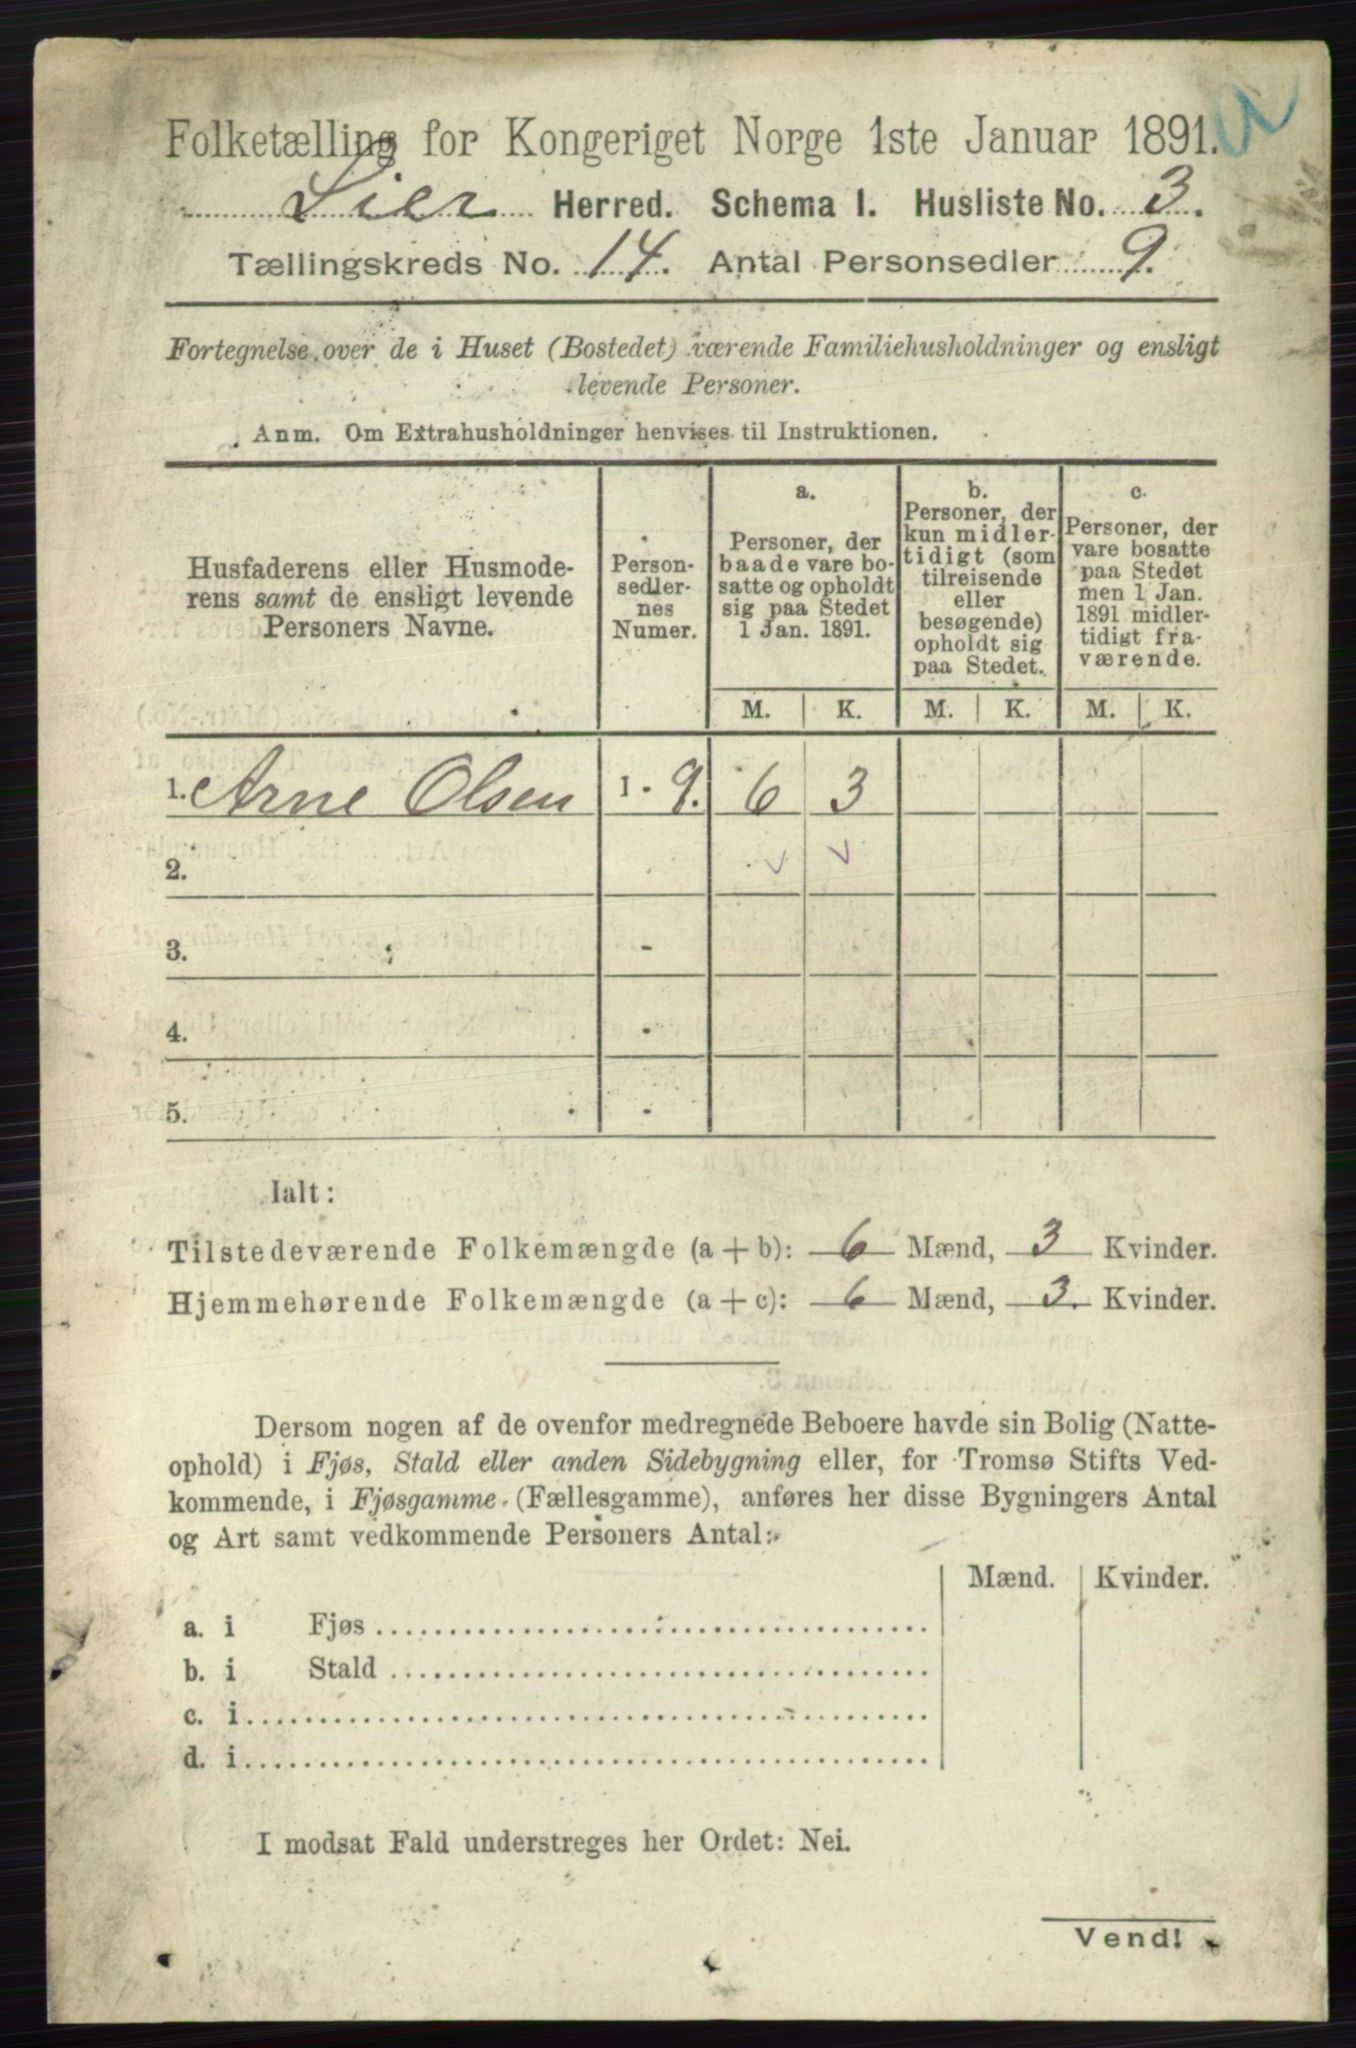 Folketælling for Kongeriget Norge 1ste Januar 1891.
Lier Herred. Schema I. Husliste No. 3.
Tællingskreds No. 14. Antal Personsedler 9.
Fortegnelse over de i Huset (Bostedet) værende Familiehusholdninger og ensligt
levende Personer.
Anm. Om Extrahusholdninger henvises til Instruktionen.
Husfaderens eller Husmode-
rens samt de ensligt levende
Personers Navne.
Person-
sedler-
nes
Numer.
a.
Personer, der
baade vare bo-
satte og opholdt
sig paa Stedet
1 Jan. 1891.
b.
Personer, der
kun midler-
tidigt (som
tilreisende
eller
besøgende)
opholdt sig
paa Stedet.
c.
Personer, der
vare bosatte
paa Stedet
men 1 Jan.
1891 midler-
tidigt fra-
værende.
M. K. M. K. M. K.
1. Arne Olsen 1 - 9. 6 3
2.
3. -
4. -
5. -
Ialt:
Tilstedeværende Folkemængde (a + b): 6 Mænd, 3 Kvinder.
Hjemmehørende Folkemængde (a + c): 6 Mænd, 3. Kvinder.
Dersom nogen af de ovenfor medregnede Beboere havde sin Bolig (Natte-
ophold) i Fjøs, Stald eller anden Sidebygning eller, for Tromsø Stifts Ved-
kommende, i Fjøsgamme (Fællesgamme), anføres her disse Bygningers Antal
og Art samt vedkommende Personers Antal:
Mænd. Kvinder.
a. i Fjøs
b. i Stald
c. i
d. i
I modsat Fald understreges her Ordet: Nei.
Vend!